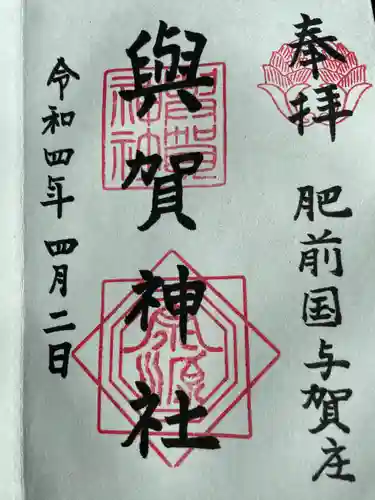 奉拝
肥前国与賀庄
與賀神社
令和四年四月二日
與賀神社